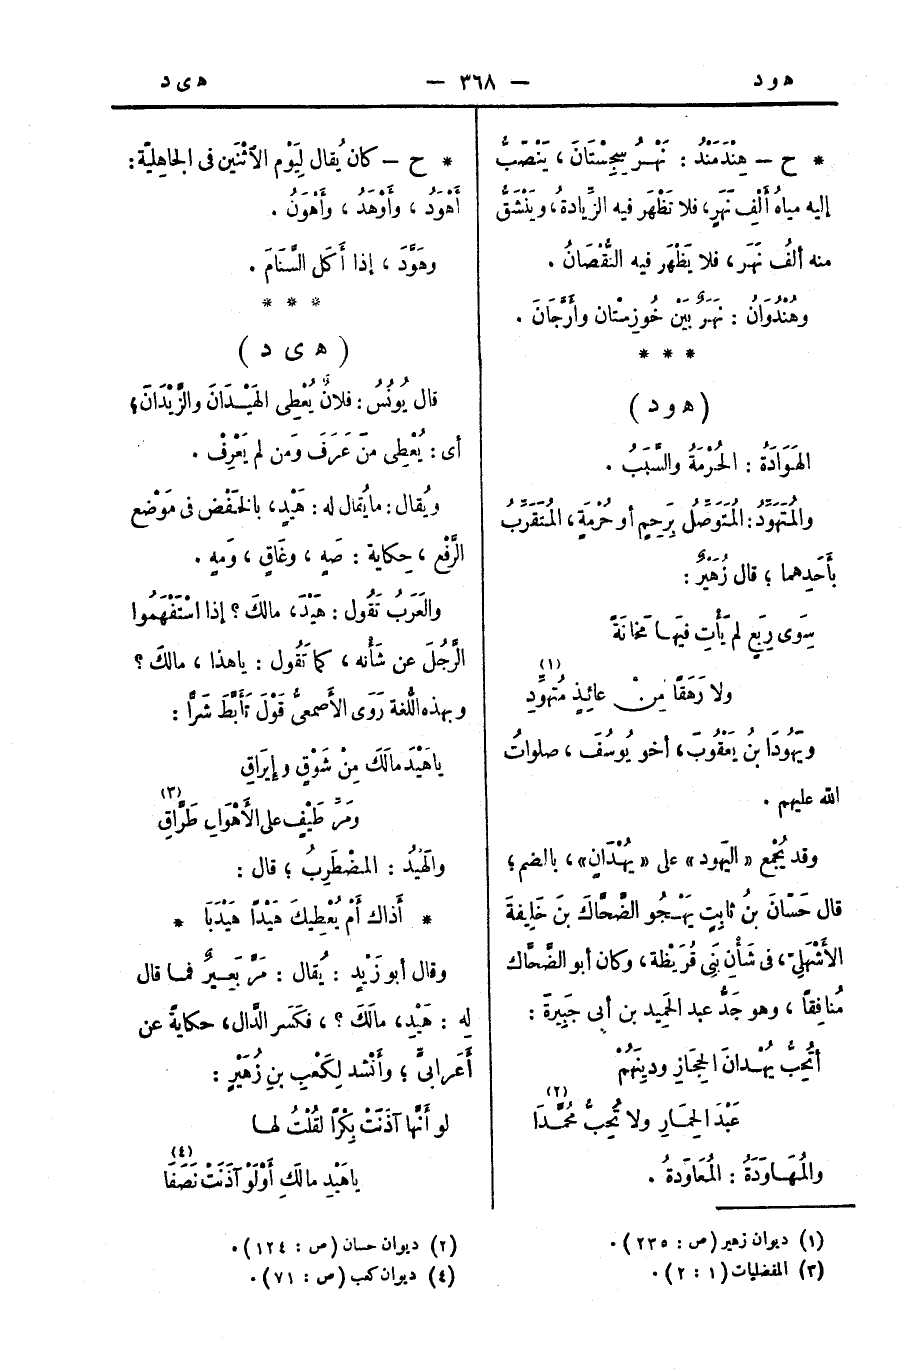 هود — ٣٦٨ — هىد
* ح – هِنْدَمَنْدُ : نَهْرُ سِجِسْتَانَ ، يَنْصَبُّ
إليه مياهُ أَلْفِ نَهَرٍ، فلا تَظْهَر فيه الزِّيادةُ، ويَنْشَقُّ
منه ألفُ نَهَر ، فلا يَظْهَر فيه النُّقْصَانُ .
وهُنْدُوَانُ : نَهَرٌ بَيْن خُوزِسْتان وأَرَّجَانَ .
* * *
( هود )
الهَوَادَةُ : الحُرْمَةُ والسَّبَبُ .
والمُتَهَوِّدُ : المُتَوَصِّلُ بِرَحِمٍ أو حُرْمَةٍ ، المُتَقَرِّبُ
بأَحَدِهما ؛ قال زُهَيْرٌ :
سِوَى رِبَعٍ لم يَأْتِ فيها مَخَانَةً
ولا رَهَقًا مِنْ عائِذٍ مُتَهوِّدِ (١)
ويَهُوذَا بنُ يَعْقُوبَ، أخو يُوسُفَ ، صلواتُ
الله عليهم .
وقد يُجْمع « اليَهود » على « يُهْدَانٍ» ، بالضم ؛
قال حَسّان بنُ ثابِتٍ يَهْجُو الضَّحَّاكَ بنَ خَلِيفَةَ
الأَشْهَلِيّ، فى شَأْنِ بَنِى قُرَيْظَة ، وكان أبو الضَّحَّاك
مُنافِقًا ، وهو جَدُّ عبد الحَمِيد بن أبى جَبِيرَةَ :
أَتُحِبُّ يُهْدانَ الحِجَازِ ودِينَهُمْ
عَبْدَ الحِمَارِ ولا تُحِبُّ مُحَمَّدَا (٢)
والمُهَاوَدَةُ : المُعَاوَدةُ .
* ح – كان يُقال لِيَوْم الاَثْنَين فى الجاهليَّة :
أَهْوَدُ ، وأَوْهَدُ ، وأَهْوَنُ .
وهَوَّدَ ، إذا أَكَل السَّنَامَ .
* * *
( هىد )
قال يُونُسُ : فلانٌ يُعْطِى الهَيْدَانَ والزَّيْدَانَ ؛
أى : يُعْطِى مَنْ عَرَفَ ومَن لم يَعْرِفْ .
ويُقال : مايُقال له : هَيْدٍ، بالخَفْض فى مَوْضع
الرَّفْعِ ، حِكاية : صَهٍ ، وغَاقٍ ، ومَهٍ .
والعَرَبُ تَقُول : هَيْدَ، مالكَ ؟ إذا اسْتَفْهَمُوا
الرَّجُلَ عن شَأْنه ، كما تَقُول : ياهذا ، مالكَ ؟
وبهذه اللُّغة رَوَى الأَصمعىُّ قَوْلَ تَأَبَّطَ شَرًّا :
ياهَيْدَ مالَكَ مِنْ شَوْقٍ وإيرَاقِ
ومَرِّ طَيْفٍ على الأَهْوَالِ طَرَّاقِ (٣)
والهَيْدُ : المضْطَرِبُ ؛ قال :
* أَذاكَ أَمْ يُعْطِيكَ هَيْدًا هَيْدَبَا *
وقال أبو زَيْدٍ : يُقال : مَرَّ بَعِيرٌ فما قال
له : هَيْدِ، مالَكَ ؟ ، فكَسَر الدَّال، حكايةً عن
أَعرابىّ ؛ وأَنْشد لِكَعْبِ بنِ زُهَيْرٍ :
لو أَنَّها آذَنَتْ بِكْرًا لقُلْتُ لها
ياهَيْدِ مالكِ أَوْلَوْ آذَنَتْ نَصَفَا (٤)
(١) ديوان زهير (ص : ٢٣٥) .
(٢) ديوان حسان (ص : ١٢٤) .
(٣) المفضليات (١ : ٢) .
(٤) ديوان كعب (ص : ٧١) .